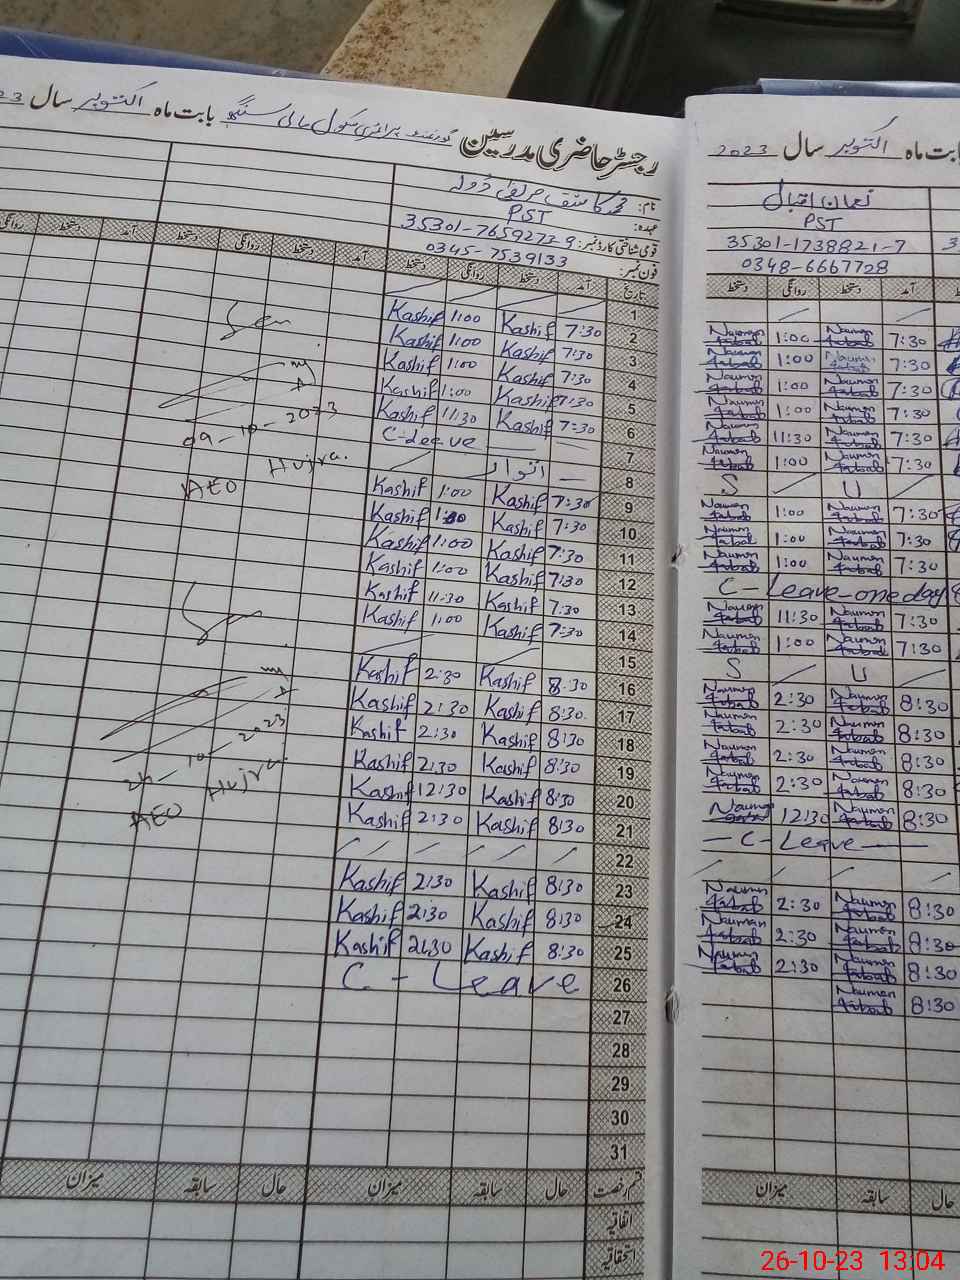 رجسٹر حاضری مدرسین گورنمنٹ پرائمری سکول مالی سنگھ بابت ماہ اکتوبر سال 23
نام: محمد کاشف
عہدہ: PST
قومی شناختی کارڈ نمبر: 35301-7659273-9
فون نمبر: 0345-7539133
تاریخ آمد دستخط روانگی دستخط آمد دستخط روانگی دستخط آمد دستخط روانگی
1
2 7:30 Kashif 1:00 Kashif
3 7:30 Kashif 1:00 Kashif
4 7:30 Kashif 1:00 Kashif
5 7:30 Kashif 1:00 Kashif
6 7:30 Kashif 11:30 Kashif
7 C-Leave
8 اتوار
9 7:30 Kashif 1:00 Kashif
10 7:30 Kashif 1:00 Kashif
11 7:30 Kashif 1:00 Kashif
12 7:30 Kashif 1:00 Kashif
13 7:30 Kashif 11:30 Kashif
14 7:30 Kashif 1:00 Kashif
15
16 8:30 Kashif 2:30 Kashif
17 8:30 Kashif 2:30 Kashif
18 8:30 Kashif 2:30 Kashif
19 8:30 Kashif 2:30 Kashif
20 8:30 Kashif 12:30 Kashif
21 8:30 Kashif 2:30 Kashif
22
23 8:30 Kashif 2:30 Kashif
24 8:30 Kashif 2:30 Kashif
25 8:30 Kashif 2:30 Kashif
26 C - Leave
27
28
29
30
31
قسم رخصت حال سابقہ میزان حال سابقہ میزان
اتفاقیہ
استحقاقیہ
Seen
09-10-2023
AEO Hujra.
Seen
24-10-2023
AEO Hujra.
بابت ماہ اکتوبر سال 2023
نعمان اقبال
PST
35301-1738821-7
0348-6667728
آمد دستخط روانگی دستخط
7:30 Nauman 1:00 Nauman
7:30 Nauman 1:00 Nauman
7:30 Nauman 1:00 Nauman
7:30 Nauman 1:00 Nauman
7:30 Nauman 11:30 Nauman
7:30 Nauman 1:00 Nauman
S U
7:30 Nauman 1:00 Nauman
7:30 Nauman 1:00 Nauman
7:30 Nauman 1:00 Nauman
C-Leave-one day
7:30 Nauman 11:30 Nauman
7:30 Nauman 1:00 Nauman
S U
8:30 Nauman 2:30 Nauman
8:30 Nauman 2:30 Nauman
8:30 Nauman 2:30 Nauman
8:30 Nauman 2:30 Nauman
8:30 Nauman 12:30 Nauman
- C- Leave -
8:30 Nauman 2:30 Nauman
8:30 Nauman 2:30 Nauman
8:30 Nauman 2:30 Nauman
8:30 Nauman
حال سابقہ میزان
26-10-23 13:04